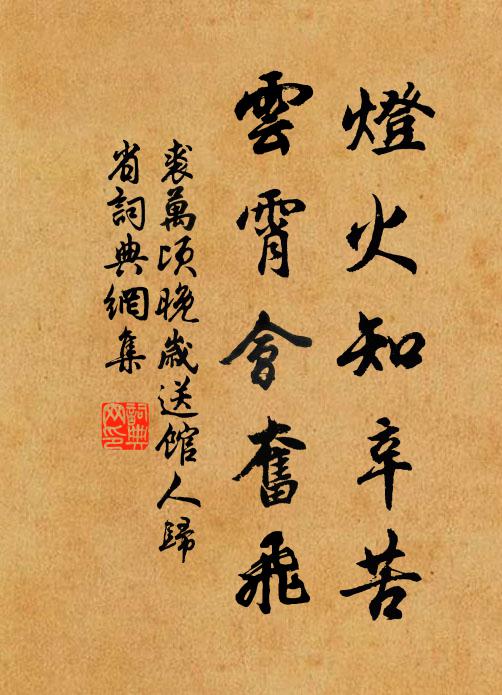 燈火知辛苦
雲霄會奮飛
裘萬頃晚歲送館人歸
省詞典網集
詞典
网印